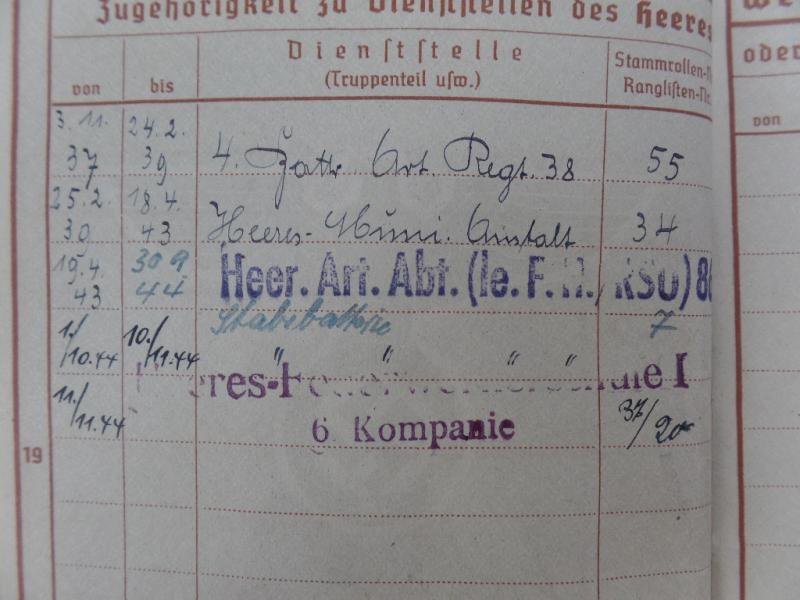 Zugehörigkeit zu Dienststellen des Heeres
Dienststelle
(Truppenteil usw.)
von bis
Stammrollen-N
Ranglisten-Nr.
oder
von
3.11. 24.2.
37 39 4. Battr. Art. Regt. 38 55
25.2. 18.4.
39 43 Heeres-Muni. Anstalt 34
19.4. 30 9.
43 44 Heer. Art. Abt. (le. F.H./RSO) 8
Stabsbatterie 7
1./10.44 10./11.44 " " " "
Heeres-Feuerwerkerschule I
11./11.44 6. Kompanie 37/20
19